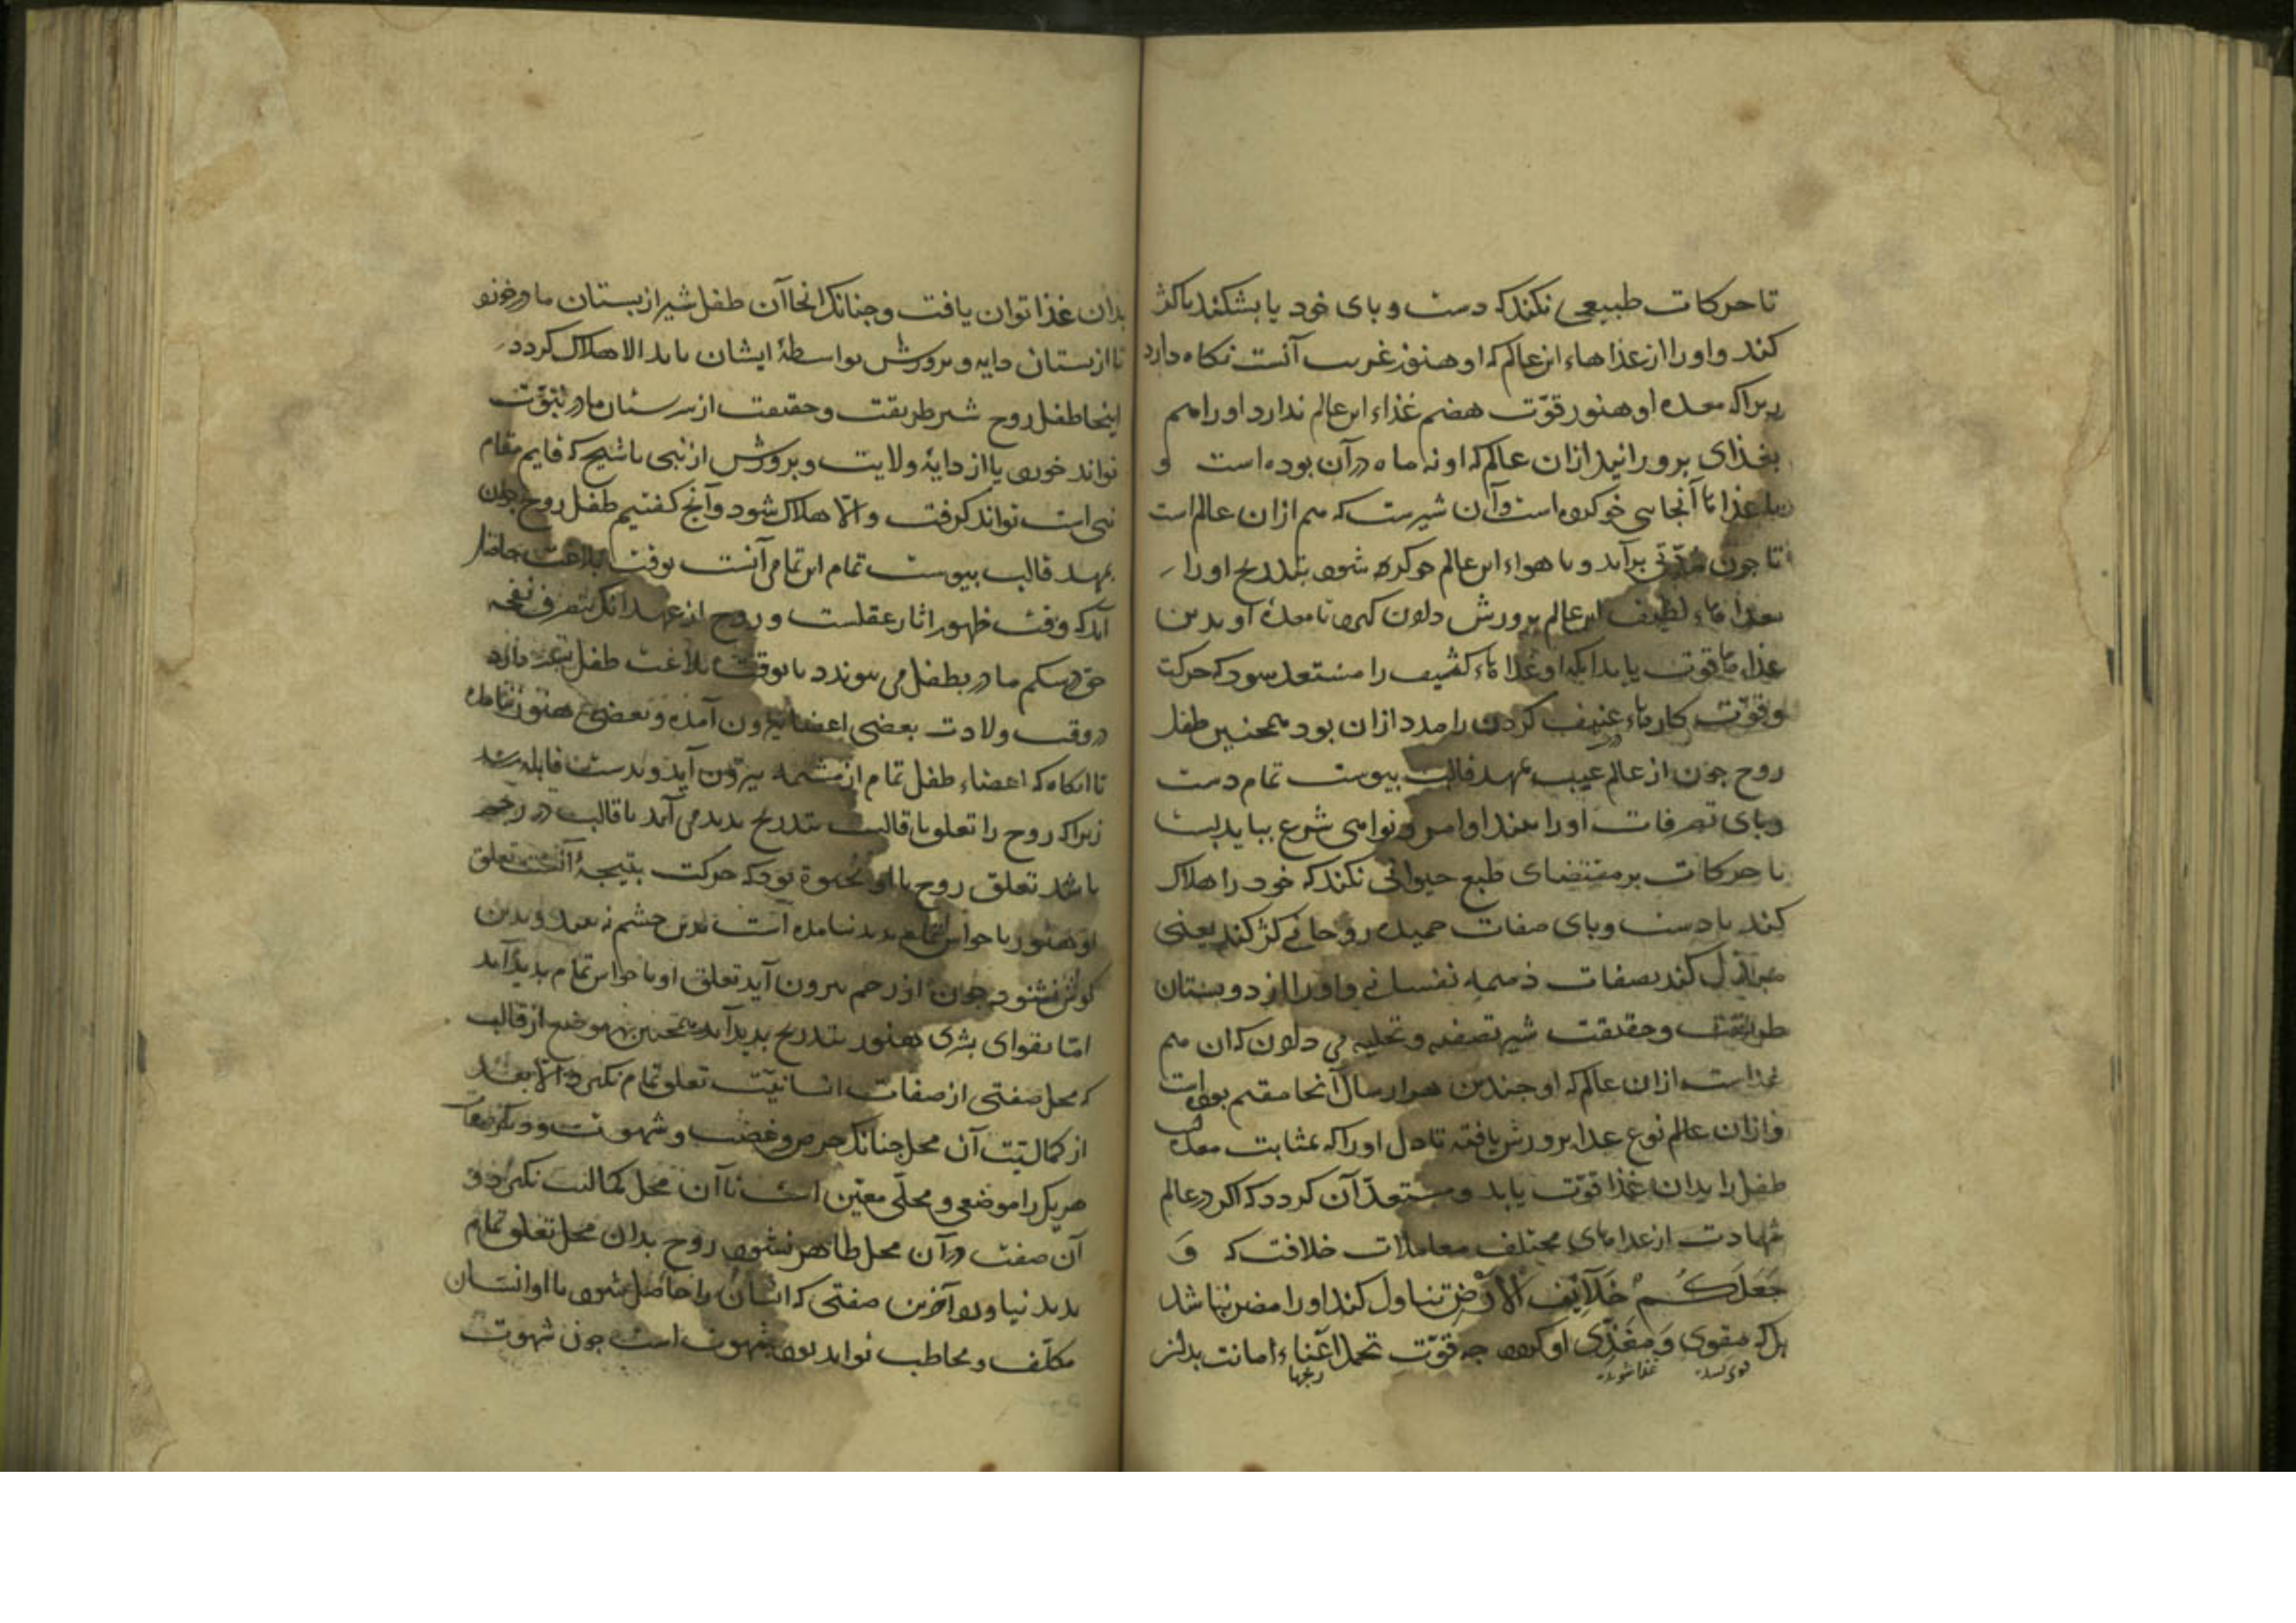 تا حرکات طبیعی نکند که دست و بای خود یا بشکند یا کژ
کند و اورا از غذاهاء این عالم که او هنوز غریب آنست نکاه دارد
زیرا که معده او هنوز قوّت هضم غذاء این عالم ندارد اورا هم
بغذای برورانید ازان عالم که او نه ماه در آن بوده است و
با غذاء آنجایی خو کرده است و آن شیرست که هم ازان عالم است
تا جون مدّتی برآید و با هواء این عالم خو کرده شود بتدریج اورا
بغذاهاء لطیف این عالم برورش دادن کیرد تا معدهٔ او بدین
غذاها قوت یابد انکه او غذاهاء کثیف را مستعد شود که حرکت
و قوّت کارهاء عنیف کردن را مدد ازان بود همجنین طفل
روح جون از عالم غیب بمهد قالب بیوست تمام دست
و بای تصرفات اورا ببند اوامر و نواهی شرع بباید بست
تا حرکات بر مقتضای طبع حیوانی نکند که خود را هلاک
کند یا دست و بای صفات حمیده روحانی کژ کند یعنی
مبدّل کند بصفات ذمیمه نفسانی و اورا از دو بستان
طریقت و حقیقت شیر تصفیه و تحلیه می دادن که ان هم
غذاست ازان عالم که او جندین هزار سال آنجا مقیم بوده است
و ازان عالم نوع غذا برورش یافته تا دل اورا که بمثابت معده
طفل را بدان غذا قوّت یابد و مستعدّ آن کردد که اکر در عالم
شهادت از غذاهای مختلف معاملات خلافت که وَ
جَعَلَكُمْ خَلَائِفَ الْأَرْضِ تناول کند اورا مضر نباشد
بل که مقوی وَ مغذّی او کردد جه قوّت تحمل اعباء امانت بدان
رنجها
بدان غذا توان یافت و جنانک انجا آن طفل شیر از بستان مادر خورد
تا از بستان دایه و برورش بواسطهٔ ایشان یابد الا هلاک کردد
اینجا طفل روح شیر طریقت و حقیقت از بستان مادر نبوّت
تواند خورد یا از دایهٔ ولایت و برورش از نبی یا شیخ که قایم مقام
نبی است تواند کرفت و الّا هلاک شود و آنج کفتیم طفل روح جون
بمهد قالب بیوست تمام این تمامی آنست بوقت بلاغت حاصل
آید که وقت ظهور اثار عقلست و روح از عهد انک بتصرف نفخه
حق در شکم مادر بطفل می بیوندد تا بوقت بلاغت طفل بتعبّد دارد
در وقت ولادت بعضی اعضا بیرون آمده و بعضی هنوز نیامده
تا انکاه که اعضاء طفل تمام از مشیمه بیرون آید و بدست قابله رسد
زیرا که روح را تعلق با قالب بتدریج بدید می آید تا قالب در رحم
باشد تعلق روح با او بحیوة بود که حرکت نتیجهٔ آنست تعلق
او هنوز با حواس تمام بدید نیامده است بدین جشم نه بیند و بدین
کوش نشنود جون از رحم بیرون آید تعلق او با حواس تمام بدید آید
امّا بقوای بشری هنوز بتدریج بدید آید همجنین بهر موضع از قالب
که محل صفتی از صفات انسانیّت تعلق تمام نکیرد الّا بعد
از کمالیّت آن محل جنانک حرص و غضب و شهوت و دیکر صفات
هر یک را موضعی و محلّی معیّن است تا آن محل کمالیت نکیرد و
آن صفت در آن محل ظاهر نشود روح بدان محل تعلق تمام
بدید نیاورد و آخرین صفتی که انسان را حاصل شود تا او انسان
مکلّف و مخاطب تواند بود شهوت است جون شهوت